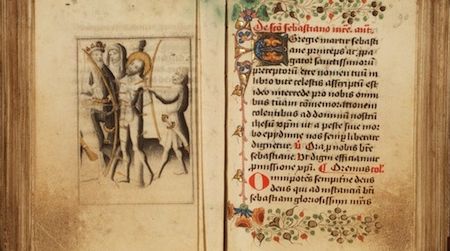 De scõ sebastiano mre. ant.
Egregie martir sebasti
ane princeps et propa
gator sanctissimorum
preceptorum ecce nomen tuũ in
libro vite celestis asscriptũ est
ideo intercede pro nobis omni
bus tuam comemorationem
colentibus ad dominum nostrũ
ihesũ xpm ut a peste siue mor
bo epydimie nos semp liberare
dignetur. V Ora p nobis bte
sebastiane. Ut digni efficiamur
pmissione xpi. Oremus col.
Omipotẽs sempitne deus
deus qui ad instanciã bti
sebastiani gloriosissimi mris